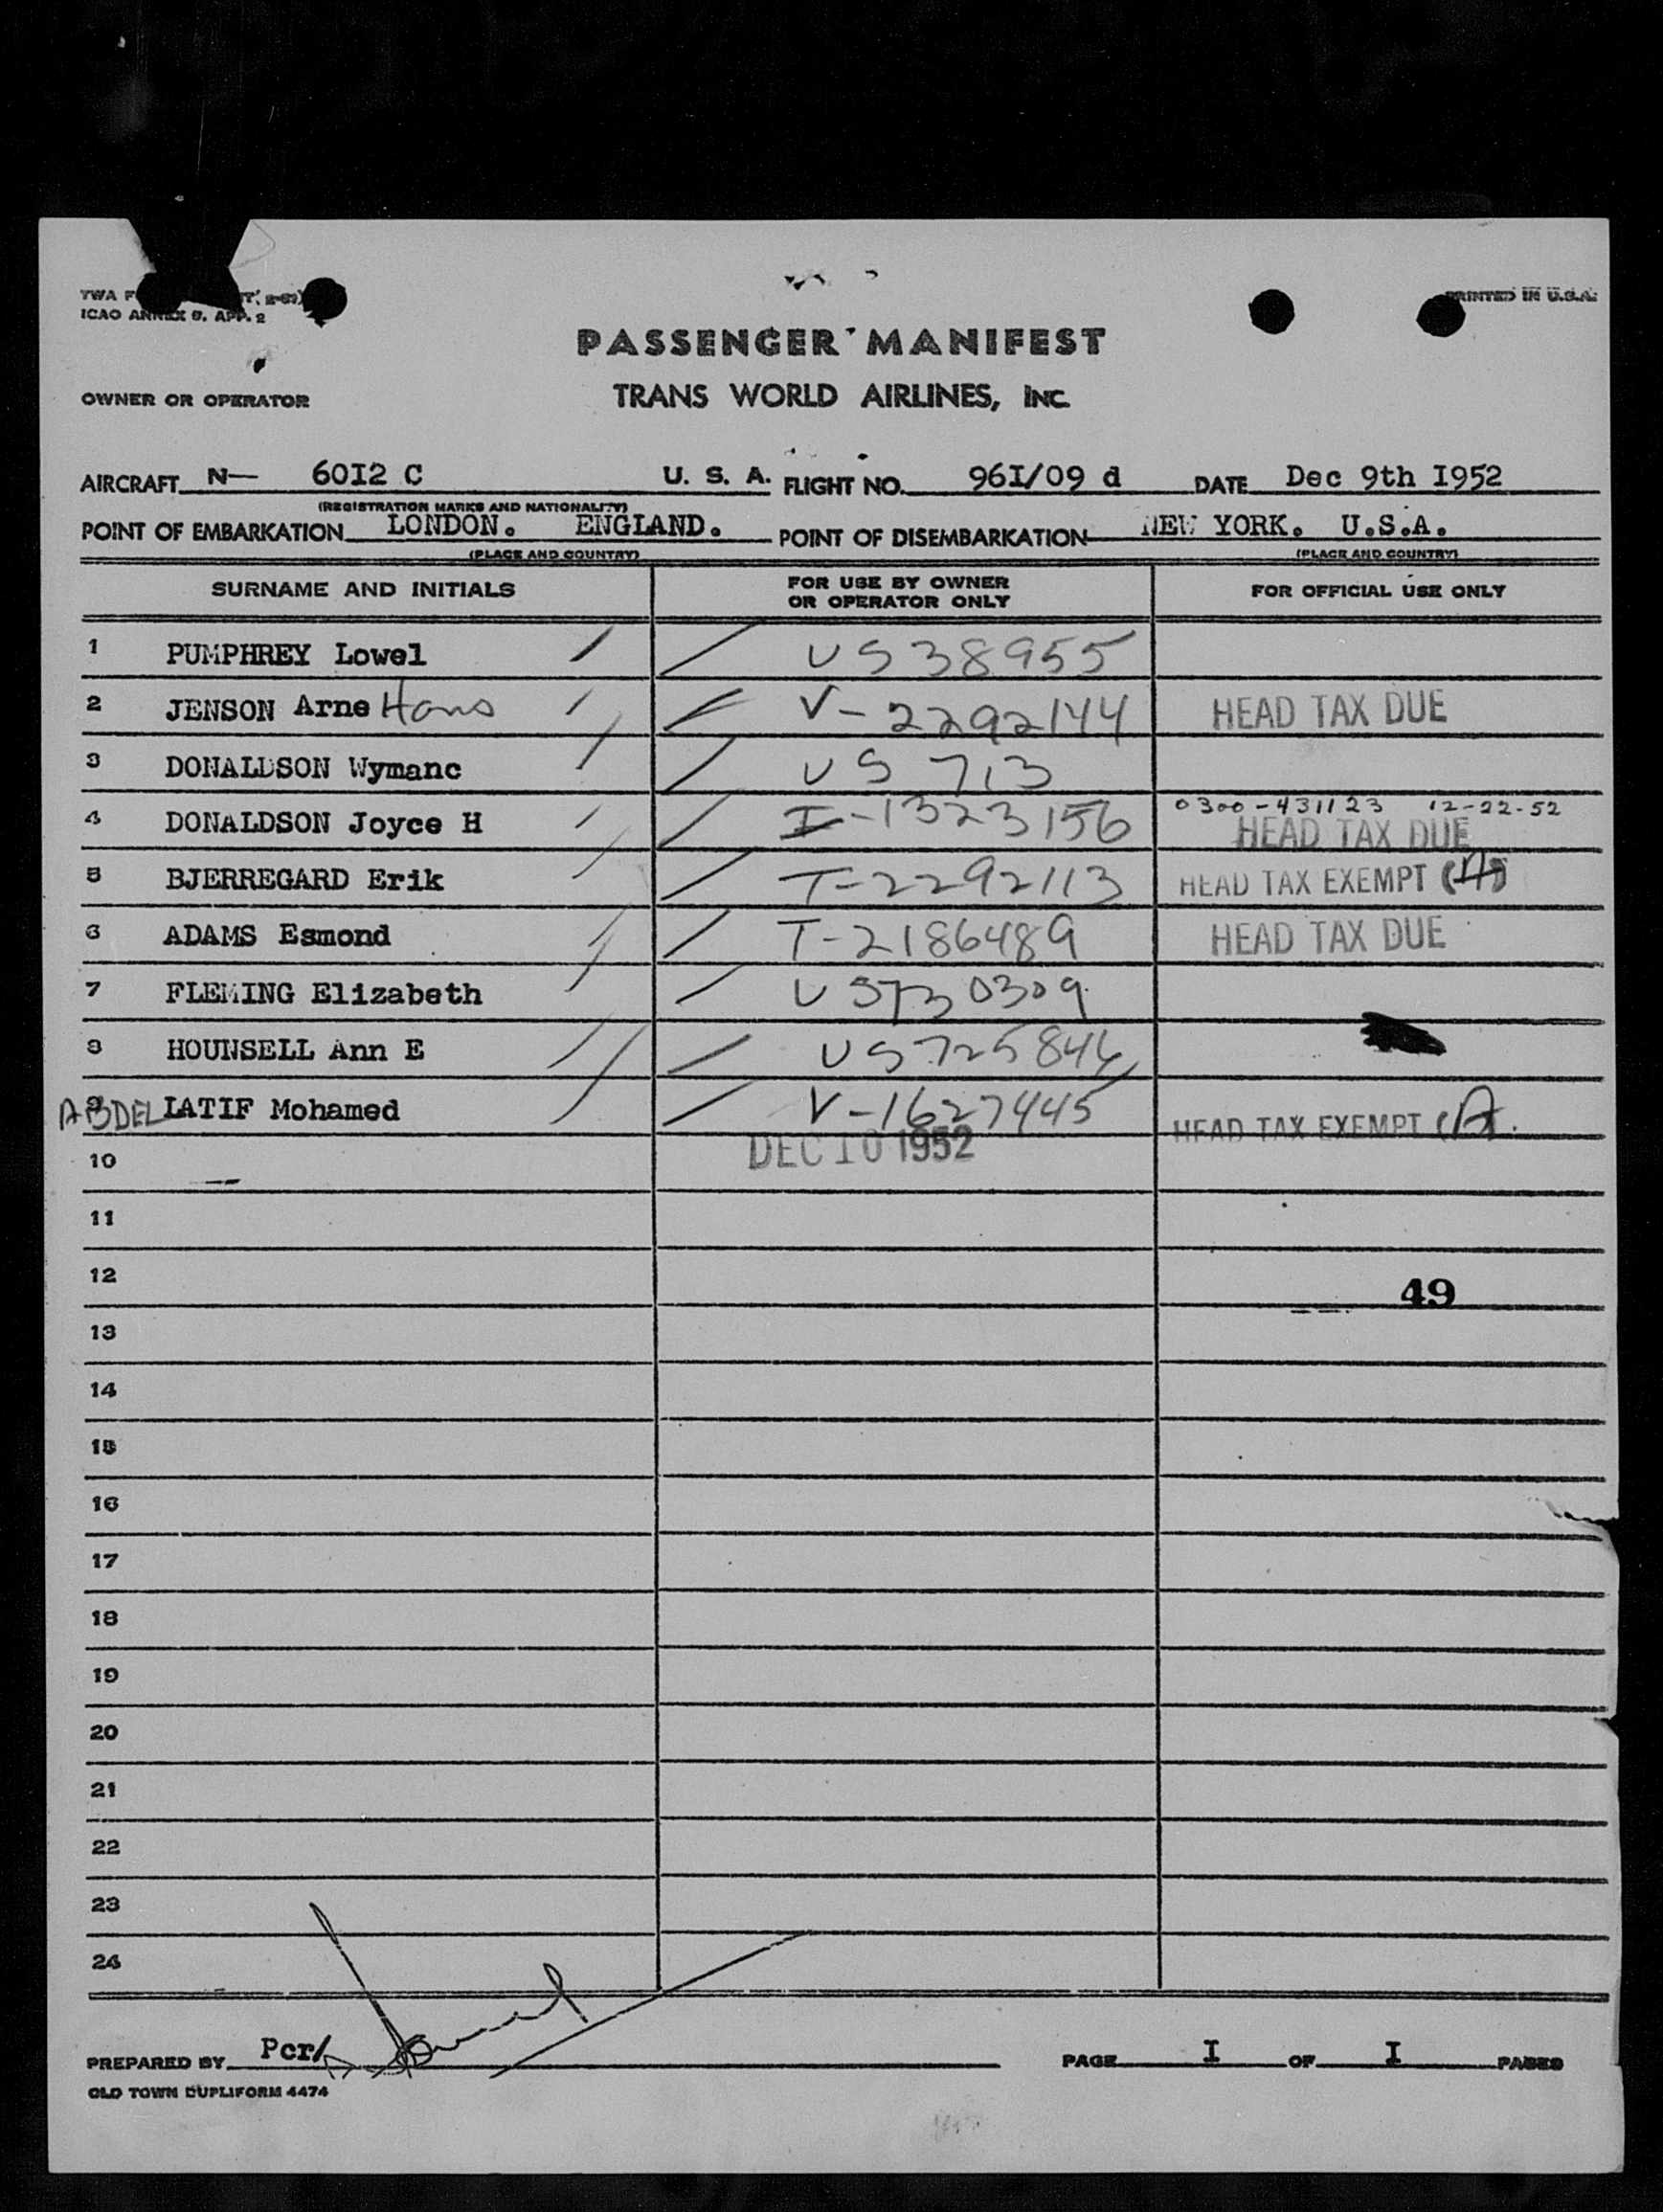 TWA F
ICAO ANNEX 9. APP. 2
PRINTED IN U.S.A.
PASSENGER MANIFEST
OWNER OR OPERATOR TRANS WORLD AIRLINES, INC.
AIRCRAFT N— 60I2 C U. S. A. FLIGHT NO. 96I/09 d DATE Dec 9th I952
(REGISTRATION MARKS AND NATIONALITY)
POINT OF EMBARKATION LONDON. ENGLAND. POINT OF DISEMBARKATION NEW YORK. U.S.A.
(PLACE AND COUNTRY) (PLACE AND COUNTRY)
SURNAME AND INITIALS FOR USE BY OWNER OR OPERATOR ONLY FOR OFFICIAL USE ONLY
1 PUMPHREY Lowel US 38955
2 JENSON Arne Hans V-2292144 HEAD TAX DUE
3 DONALDSON Wymanc US 713
0300-431123 12-22-52
4 DONALDSON Joyce H I-1323156 HEAD TAX DUE
5 BJERREGARD Erik T-2292113 HEAD TAX EXEMPT
6 ADAMS Esmond T-2186489 HEAD TAX DUE
7 FLEMING Elizabeth US730309
8 HOUNSELL Ann E US725846
9 ABDEL LATIF Mohamed V-1627445 HEAD TAX EXEMPT (A)
10 DEC 10 1952
11
12 49
13
14
15
16
17
18
19
20
21
22
23
24
PREPARED BY Pcr/ PAGE I OF I PAGES
OLD TOWN DUPLIFORM 4474